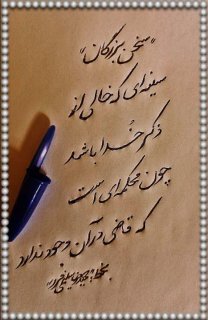 "سخن بزرگان"
سینه‌ای که خالی از
ذکر خدا باشد
چون محکمه‌ای است
که قاضی در آن وجود ندارد
بخط: